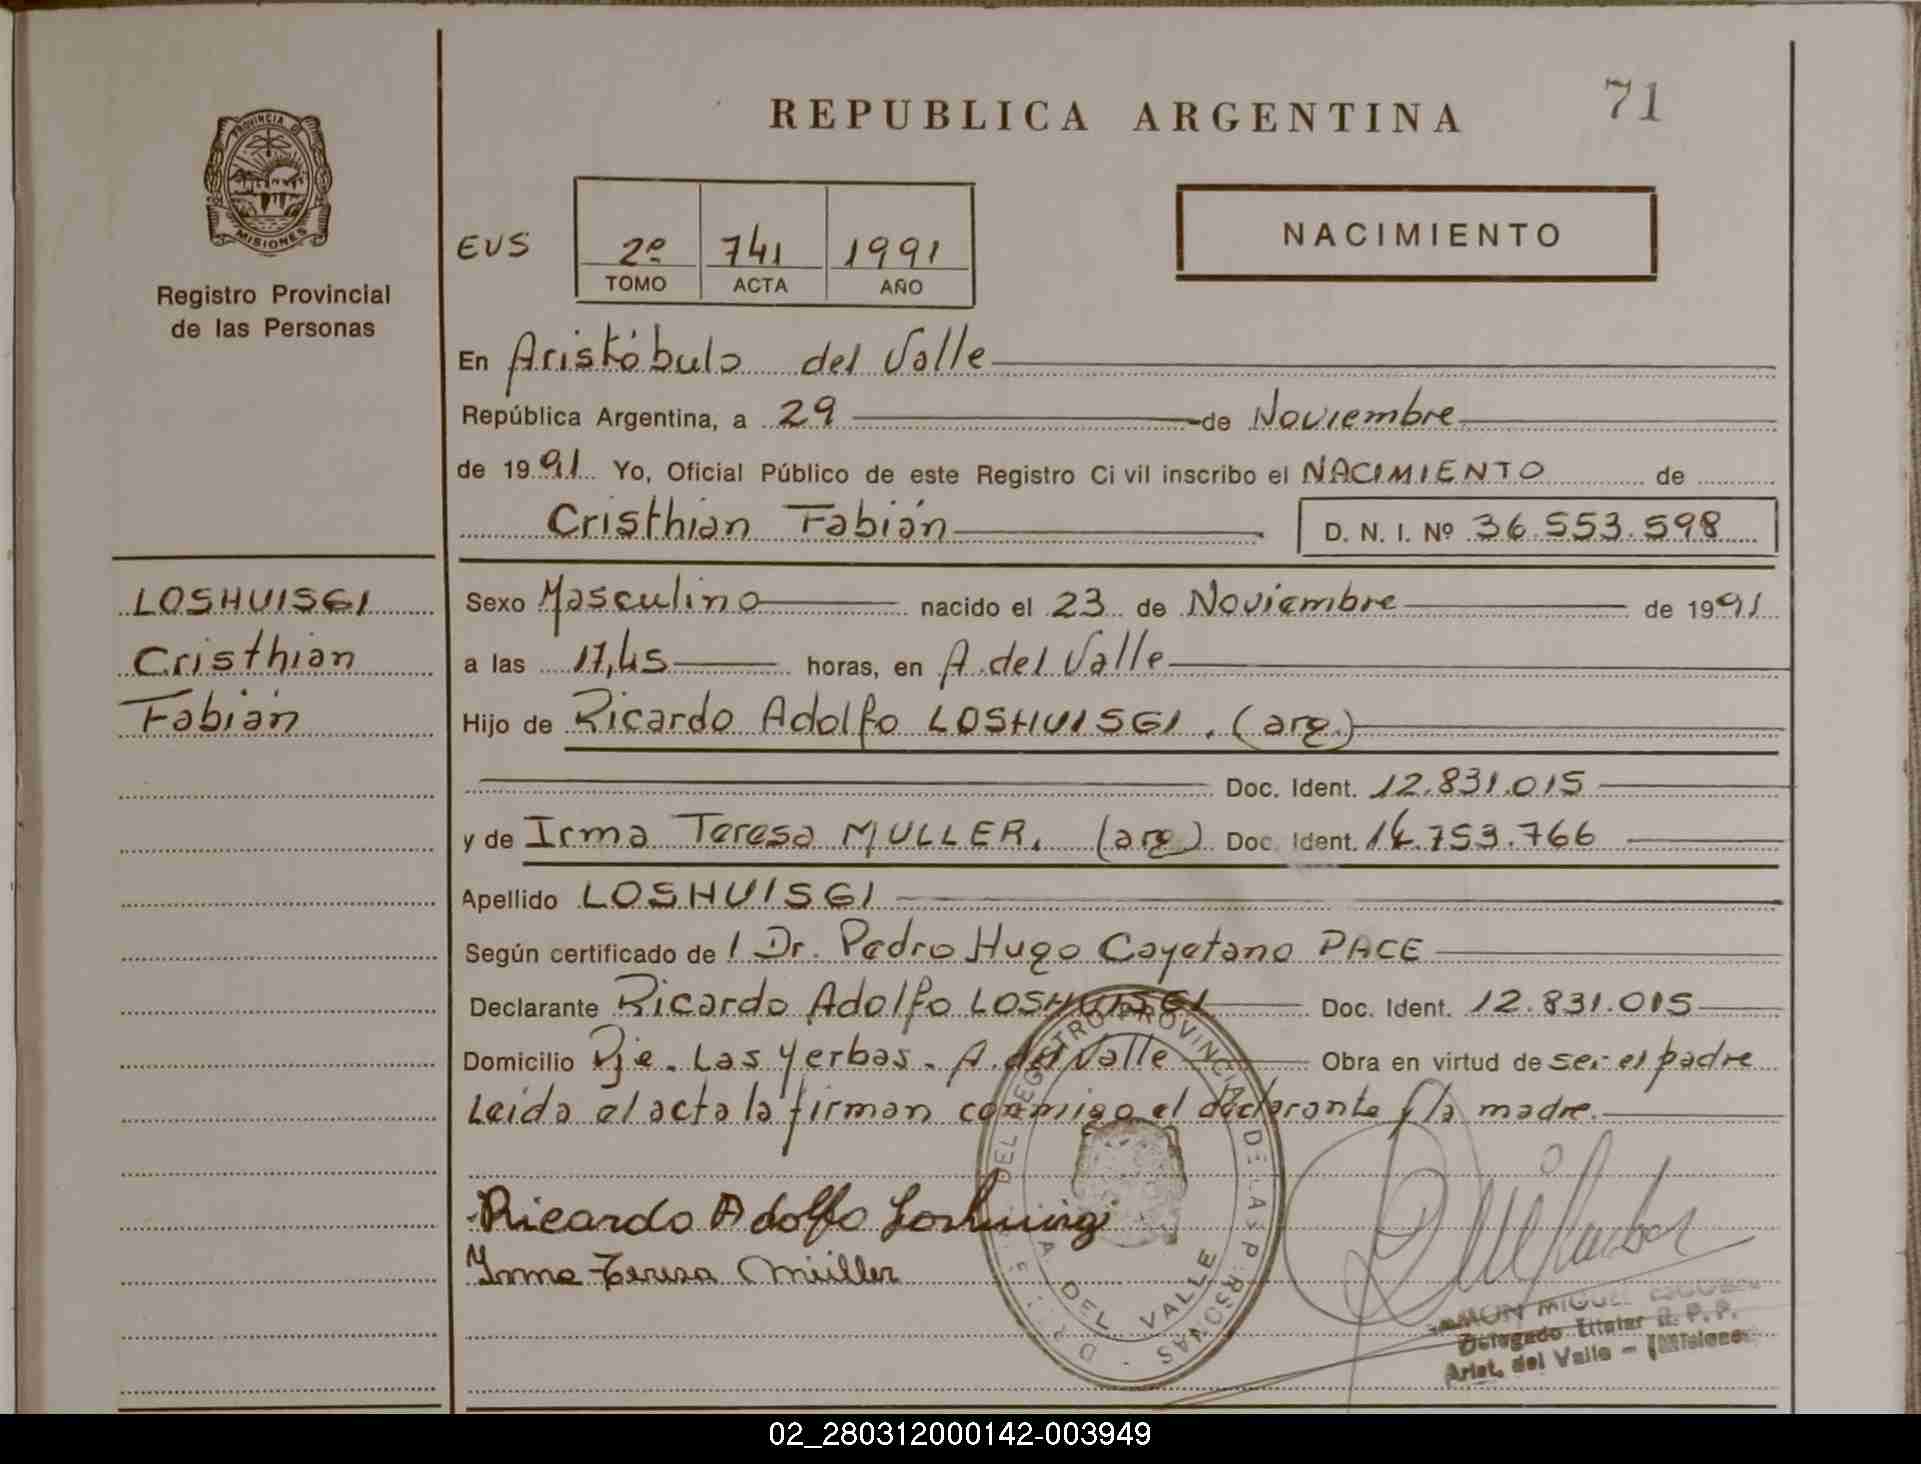 REPUBLICA ARGENTINA
71
PROVINCIA DE
MISIONES
Registro Provincial
de las Personas
EUS
2º 741 1991
TOMO ACTA AÑO
NACIMIENTO
En Aristóbulo del Valle
República Argentina, a 29 de Noviembre
de 1991 Yo, Oficial Público de este Registro Civil inscribo el NACIMIENTO de
Cristhian Fabián D. N. I. Nº 36.553.598
LOSHUISGI
Cristhian
Fabián
Sexo Masculino nacido el 23 de Noviembre de 1991
a las 17,45 horas, en A. del Valle
Hijo de Ricardo Adolfo LOSHUISGI. (arg.)
Doc. Ident. 12.831.015
y de Irma Teresa MULLER. (arg) Doc. Ident. 14.753.766
Apellido LOSHUISGI
Según certificado de l Dr. Pedro Hugo Cayetano PACE
Declarante Ricardo Adolfo LOSHUISGI Doc. Ident. 12.831.015
Domicilio Pje. Las Yerbas. A. del Valle Obra en virtud de ser el padre
Leida el acta la firman conmigo el declarante y la madre.
Ricardo Adolfo Loshuisgi
Irma Teresa Müller
DEL REGISTRO PROVINCIAL DE LAS PERSONAS
DEL VALLE
MIGUEL
Delegado Titular R. P. P.
Arist. del Valle - (Misiones)
02_280312000142-003949